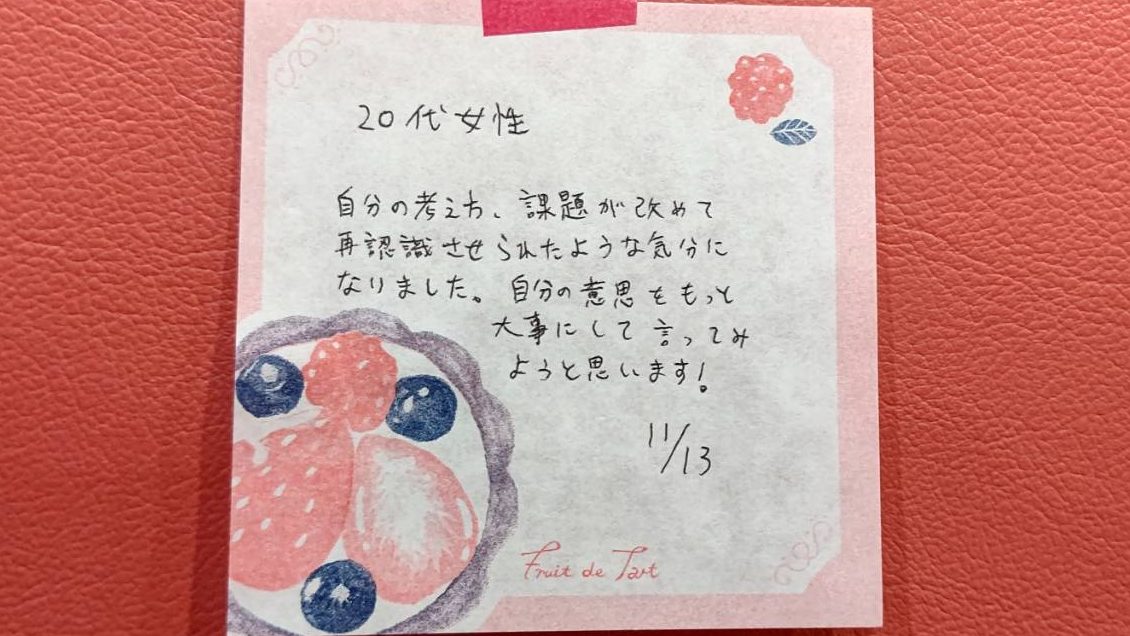 20代女性
自分の考え方、課題が改めて
再認識させられたような気分に
なりました。自分の意思をもっと
大事にして言ってみ
ようと思います!
11/13
Fruit de Tart